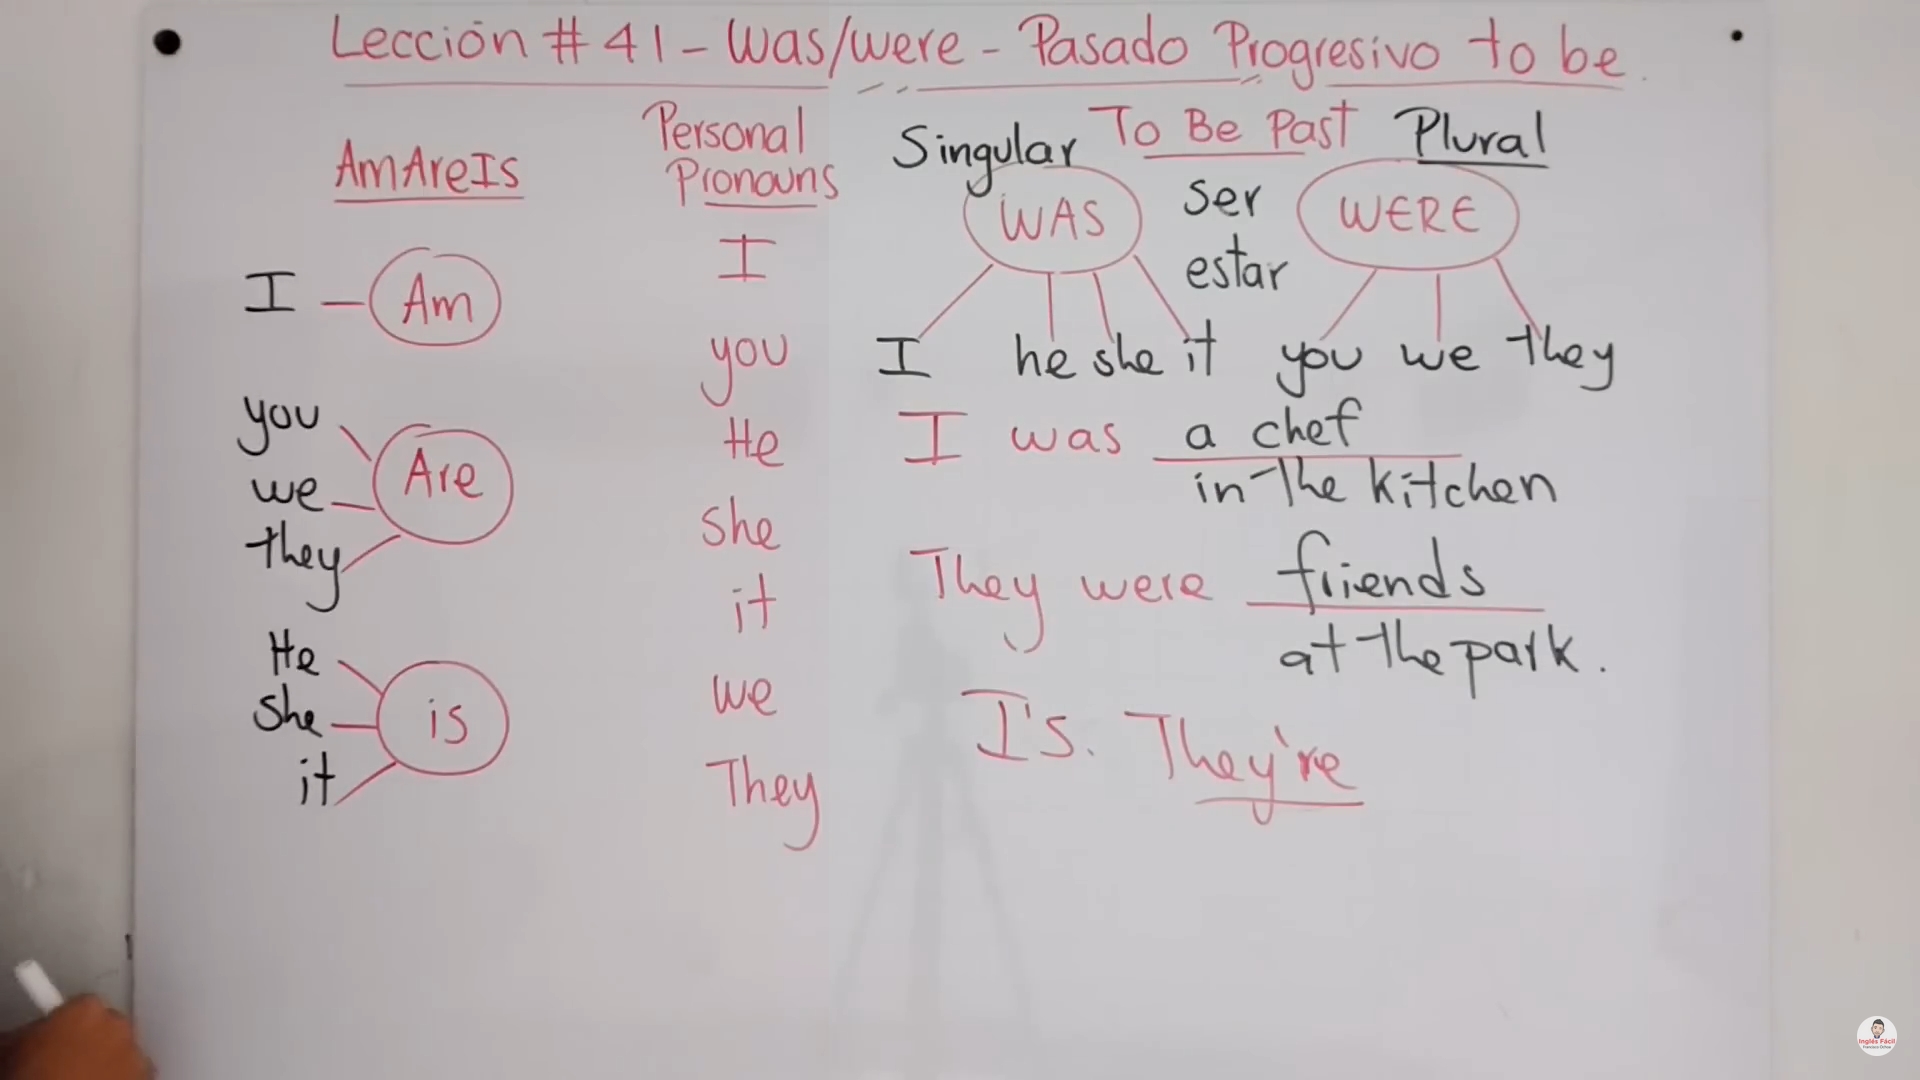 Lección # 41 - Was/were - Pasado Progresivo to be
AmAreIs
I - Am
you
we
they
Are
He
she
it
is
Personal
Pronouns
I
you
He
she
it
we
They
Singular To Be Past Plural
WAS ser WERE
estar
I he she it you we they
I was a chef
in the kitchen
They were friends
at the park.
I's. They're
Inglés Fácil